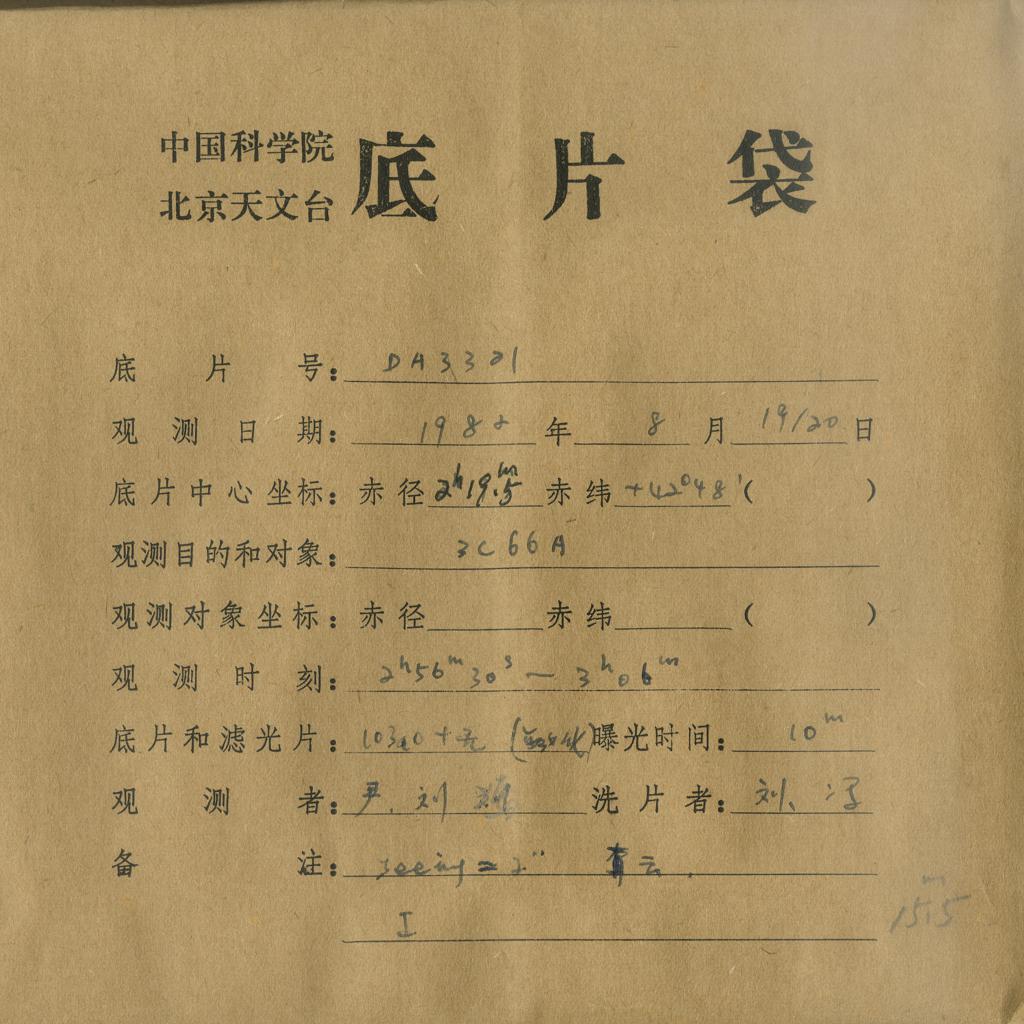 中国科学院
北京天文台
底片袋
底片号: DA3321
观测日期: 1982年 8月 19/20日
底片中心坐标: 赤径 2h19.m5 赤纬 +42°48′ ( )
观测目的和对象: 3C66A
观测对象坐标: 赤径 赤纬 ( )
观测时刻: 2h56m30s — 3h06m
底片和滤光片: 103aO + 无 曝光时间: 10m
观测者: 尹、刘 洗片者: 刘、冯
备注: seeing = 2″ 有云.
I
15.m5